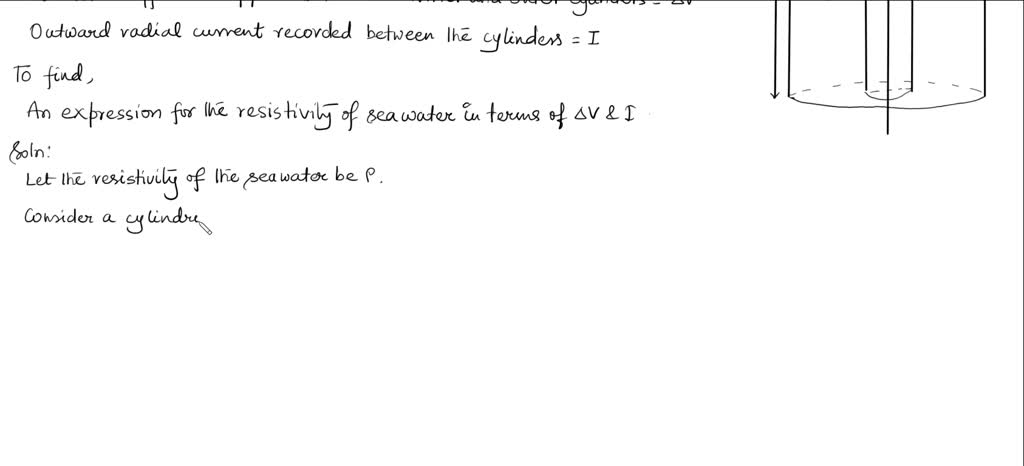 cylinders = ΔV
Outward radial current recorded between the cylinders = I
To find,
An expression for the resistivity of seawater in terms of ΔV & I
Soln:
Let the resistivity of the seawater be ρ.
Consider a cylindre